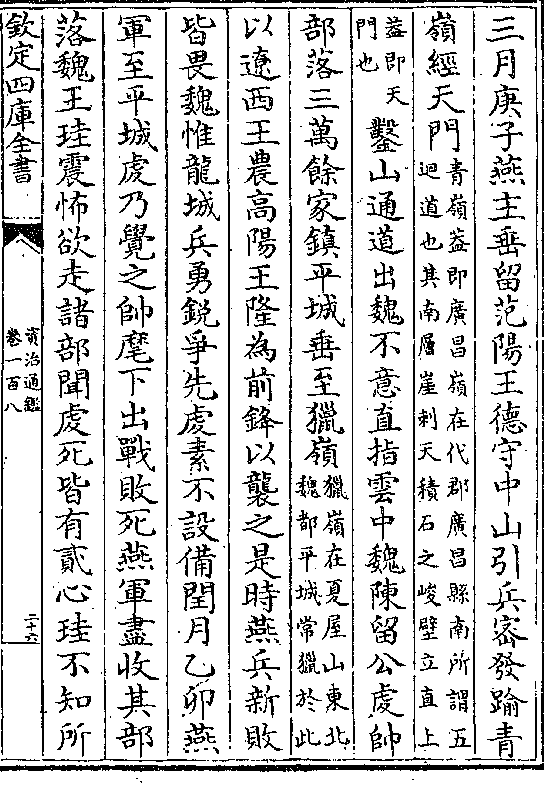 三月庚子燕主垂留范陽王德守中山引兵宻發踰青
嶺經天門
青嶺葢即廣昌嶺在代郡廣昌縣南所謂五
迴道也其南層崖刺天積石之峻壁立直上
葢即天
門也
鑿山通道出魏不意直指雲中魏陳留公䖍帥
部落三萬餘家鎮平城垂至獵嶺
獵嶺在夏屋山東北
魏都平城常獵於此
以遼西王農高陽王隆為前鋒以襲之是時燕兵新敗
皆畏魏惟龍城兵勇銳爭先䖍素不設備閏月乙卯燕
軍至平城䖍乃覺之帥麾下出戰敗死燕軍盡收其部
落魏王珪震怖欲走諸部聞䖍死皆有貳心珪不知所
欽定四庫全書
資治通鑑
卷一百八
二十六